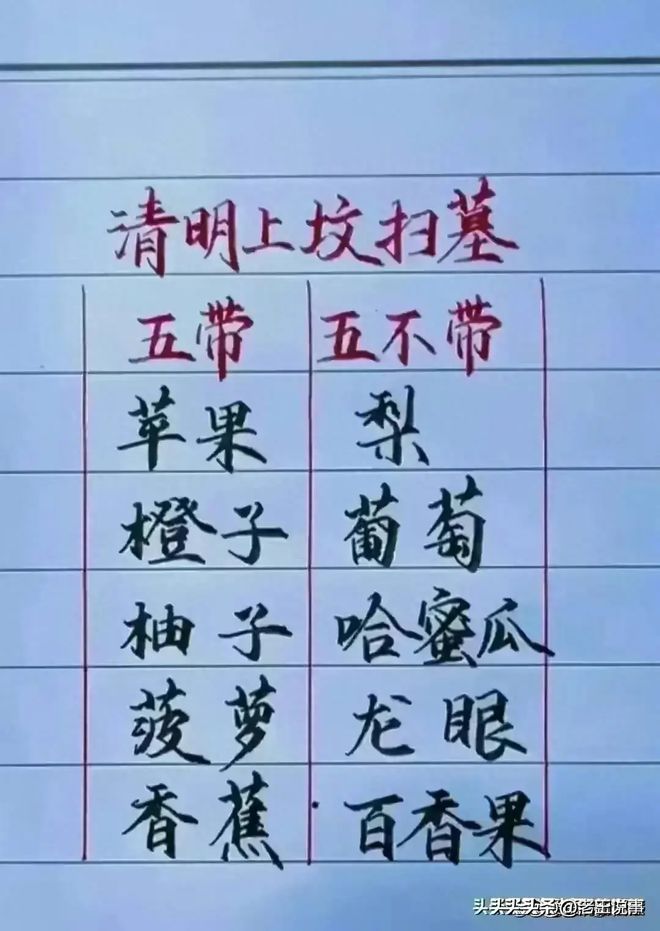 清明上坟扫墓
五带 五不带
苹果 梨
橙子 葡萄
柚子 哈蜜瓜
菠萝 龙眼
香蕉 百香果